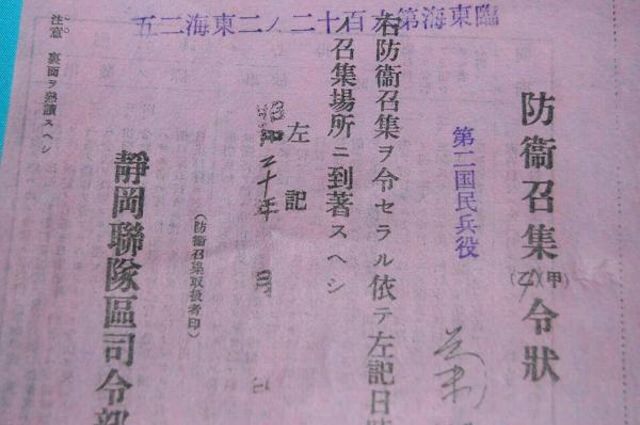 臨東海第 百十二ノ二東海二五
防衞召集
(甲)
(乙)
令狀
第二国民兵役
右防衞召集ヲ令セラル依テ左記日時
召集場所ニ到著スヘシ
左記
昭和二十年 月 日
(防衞召集取扱者印)
靜岡聯隊區司令部
注意 裏面ヲ熟讀スヘシ